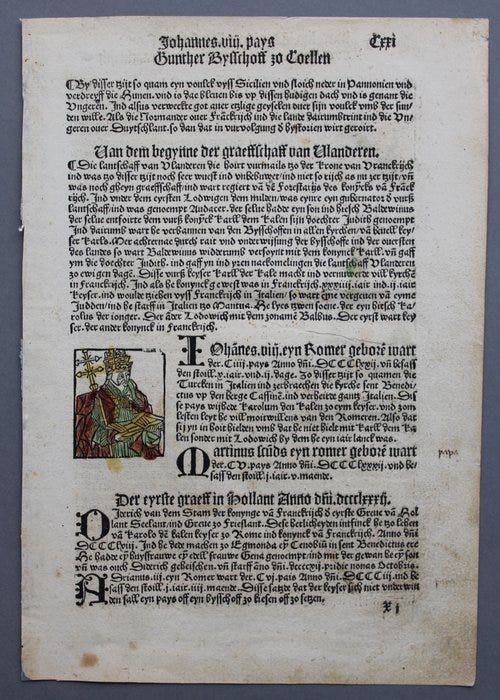 Johannes.viij. pays Cxxi
Gunther Bysschoff zo Coellen
By disser tzijt so quam eyn voulck vyss Sicilien vnd sloich neder in Pannonien vnd
verdreyff die Hunen. vnd is dar bleuen bis vp dissen hudigen dach vnd is genant die
Vngeren. Ind alsus verweckte got auer etzlige geyselen ouer sijn voulck vmb der sun
den wille. Als die Normander ouer Franckrijch ind die lande dairumbtrint ind die Vn
geren ouer Duytschlant. so dan dat in vuruolgung d hystorien wirt geroirt.
Uan dem begynne der graeffschaff van Vlanderen.
Die lantschaff van Vlanderen die hoirt vurmails tzo der krone van Vranckrijch
ind was tzo disser tzijt noch seer wuest ind vnbebuwet/ind niet so rijch as nu zer tzijt/vn
was noch gheyn graeffschaff/ ind wart regiert vā dē Forestarijs des konyncks vā Franck
rijch. Ind vnder dem eyrsten Lodwigen dem milden/was eynre eyn gubernator d vurss
lantschaff/ind was genoempt Audacer. der selue hadde eyn son ind hiesch Baldewinus
der selue entfoirte dem vurss konynck karll dem kalen sijn dochter Judith genoempt
Ind dairumb wart he verbannen van den Bysschoffen in allen kyrchen/vā beuell key/
ser karls. Mer achternae durch rait vnd vnderwijsung der bysschoffe ind der ouersten
des landes so wart Baldewinus widderumb versoynt mit dem konynck karll. vn gaff
ym die dochter Judith. ind gaff yn ind yren nakomelingen die lantschaff Vlanderen
zo ewigen dagē. Disse vurss keyser karll der kale macht ind vermeerde vill kyrchē
in Franckrijch. Ind als he konynck gewest was in Franckrijch.xxxiij.iair ind.ij.iair
keyser. ind woulde ziehen vyss Franckrijch in Italien/ so wart eme vergeuen vā eyme
Judden/ind he starff in Italien tzo Mantua. He lyes tzwen soene. der eyn hiesch ka/
rolus der ionger. Der āder Lodowich mit dem zonamē Balbus. Der eyrst wart key
ser. der ander konynck in Franckrijch.
IOhānes.viij. eyn Romer geborē wart
der. Cxiij.pays Anno dn̄i. DCCClxxij. vn̄ besass
den stoill.x.iair.vnd.ij.dage. Zo disser tzijt so quamen die
Turcken in Italien ind zerbraechen die kyrche sent Benedi/
ctus vp den berge Cassinē. ind verheirde gantz Italien. Dis
se pays wijhede karolum den kalen zo eym keyser. vnd zom
lesten leyt he vill moitwillens van den Romeren. Also dat
sij yn in hoit hielden vmb dat he niet hielt mit karll dem ka
len sonder mit Lodowich by dem he eyn iair lanck was.
Martinus scđus eyn romer geborē wart
der. CV. pays Anno dn̄i. DCCClxxxij. vnd be/
sass den stoill.j.iair.v.maende.
papa
Der eyrste graeff in Hollant Anno dn̄i. dccclxxij.
DJderich van dem Stam der konynge vā Franckrijch d eyrste Greue vā Hol
lant Seelant/ind Greue zo Frieslant. Dese herlicheyden intfinck he tzo lehen
vā karolo dē kalen keyser zo Rome ind konynck vā Franckrijch. Anno dn̄i
DCCClxiij. Ind he dede machen zo Egmonda eȳ Cenobiū in sent Benedictus ere
He hadde eȳ huysfrauwe eȳ edell frauwe Gena genoempt/ind mit der gewan he eȳ soin
vn̄ was ouch Diderich geheischen. vn̄ starff āno dn̄i. dccccxij. pridie nonas Octobris.
ADrianus.iij.eyn Romer wart der. Cvj.pais Anno dn̄i. DCCCiij.ind be
sass den stoill.j.iair.iij.maende. Disse satzde dat der keyser sich niet vnderwin
den sall eyn pays off eyn bysschoff zo kiesen off zo setzen.